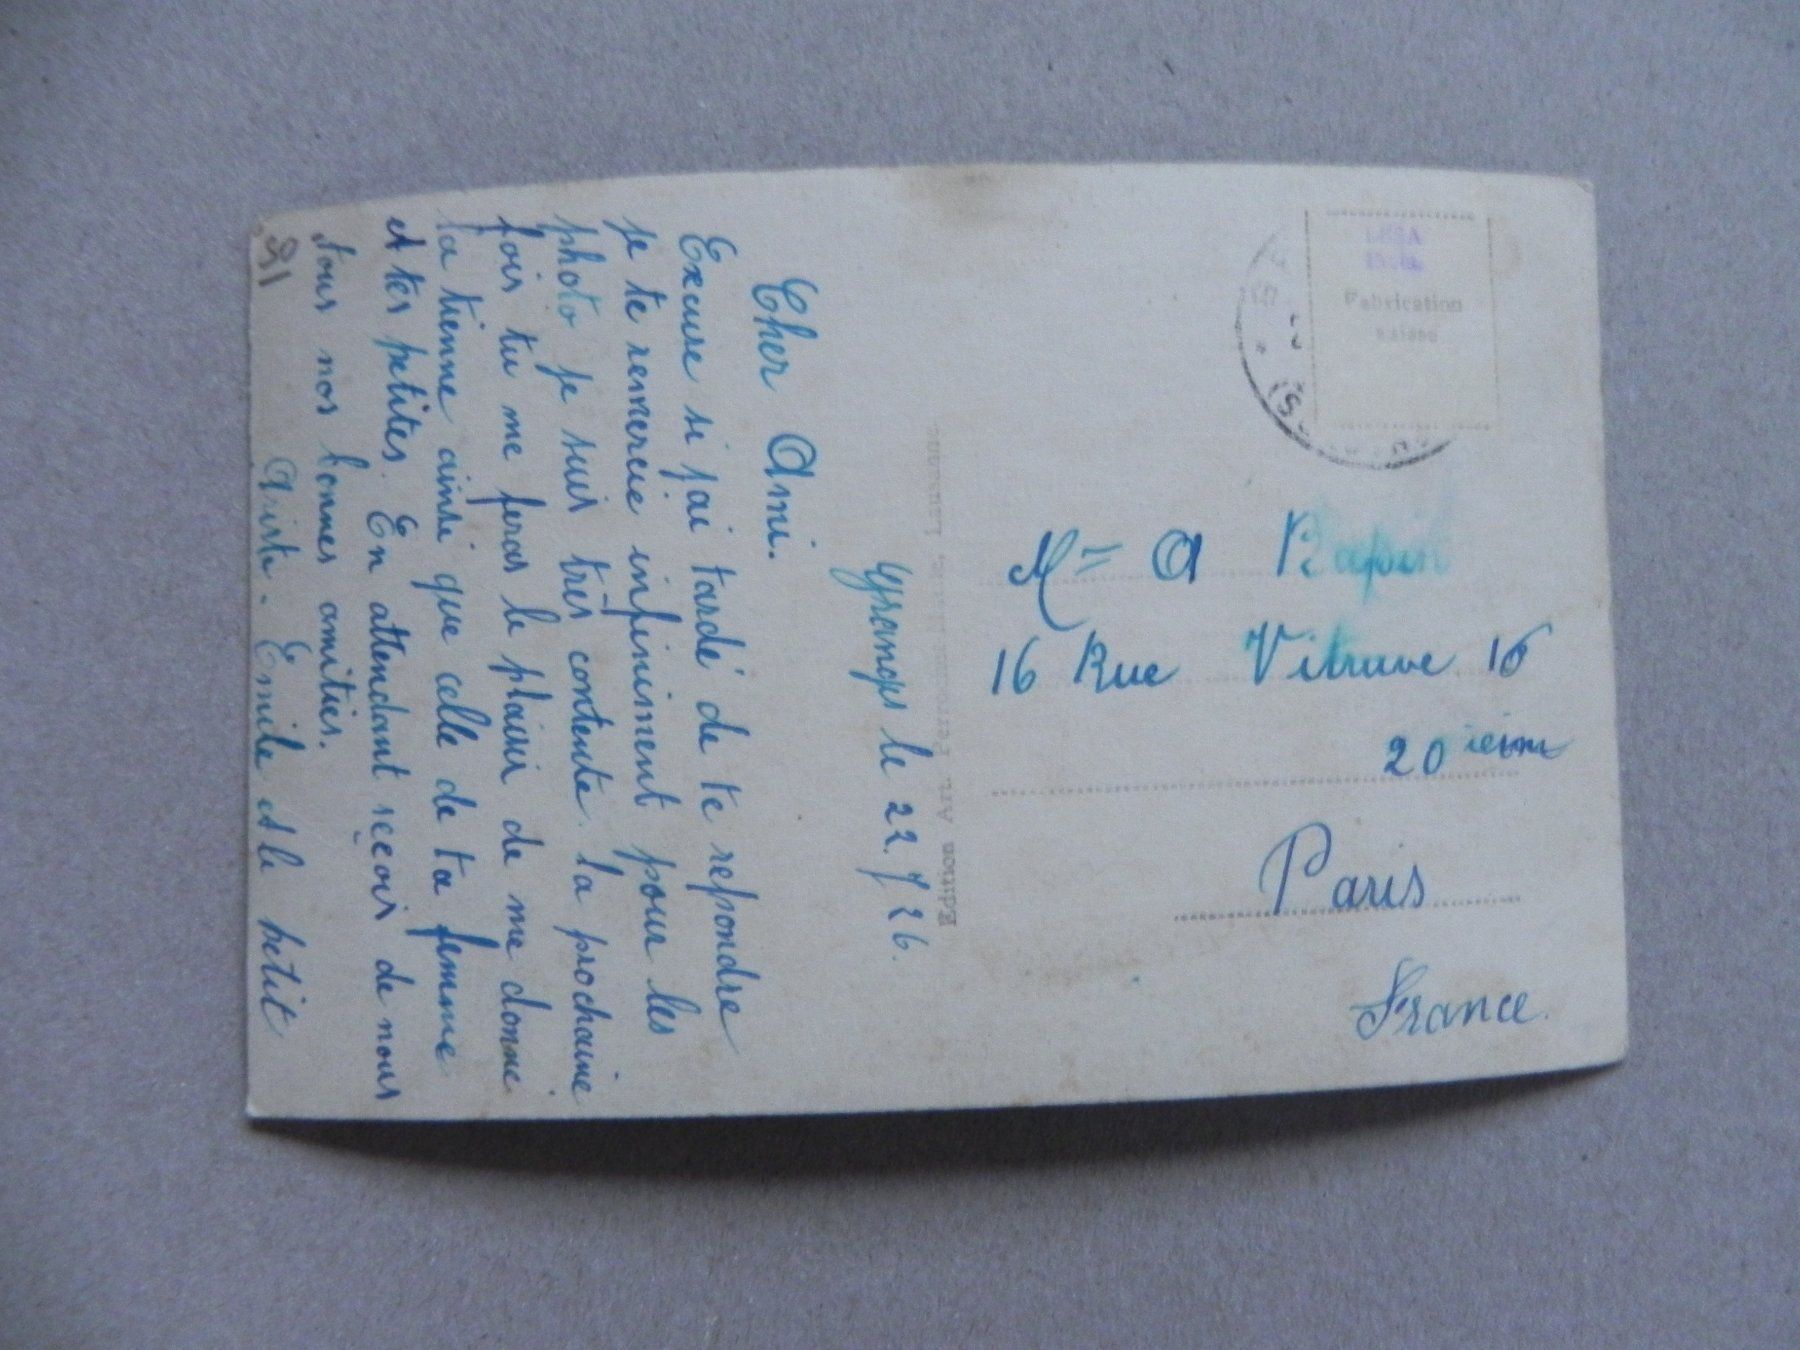 Granges le 22. 7 26.
Cher Ami.
Excuse si j'ai tardé de te repondre
je te remercie infiniment pour les
photo je suis très contente. la prochaine
fois tu me feras le plaisir de me donné
la tienne ainsi que celle de ta femme
et tes petites. En attendant reçois de nous
tous nos bonnes amitiés.
Emile et le petit
Edition Art. Perrochet
Fabrication
suisse
Mr A Rapin
16 Rue Vitruve 16
20 ieme
Paris
France.